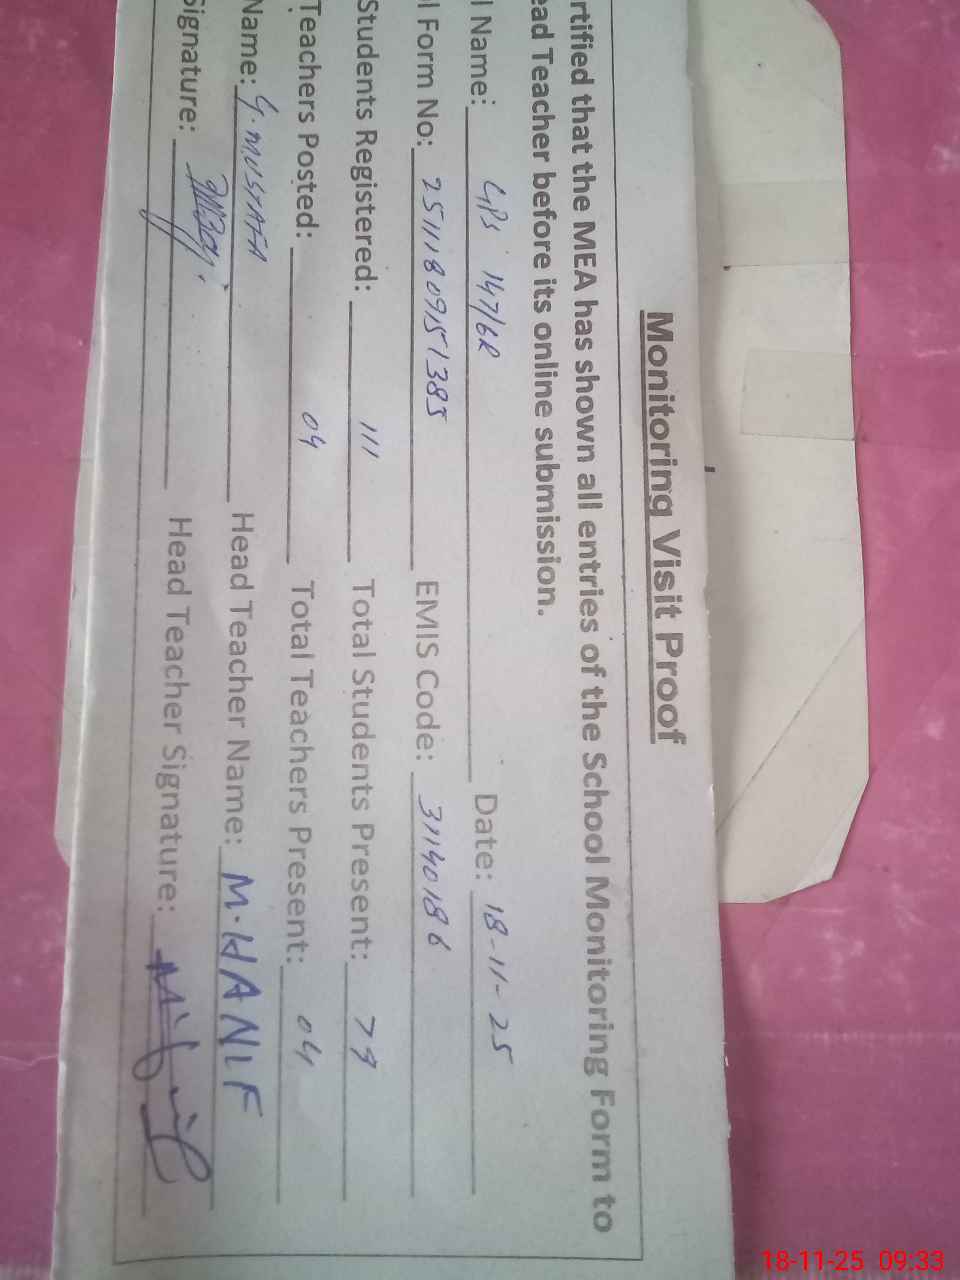 Monitoring Visit Proof
rtified that the MEA has shown all entries of the School Monitoring Form to
ead Teacher before its online submission.
l Name: GPS 147/6R Date: 18-11-25
l Form No: 25111809151385 EMIS Code: 31140186
Students Registered: 111 Total Students Present: 79
Teachers Posted: 04 Total Teachers Present: 04
Name: G.MUSTAFA Head Teacher Name: M.HANIF
Signature: Head Teacher Signature:
18-11-25 09:33